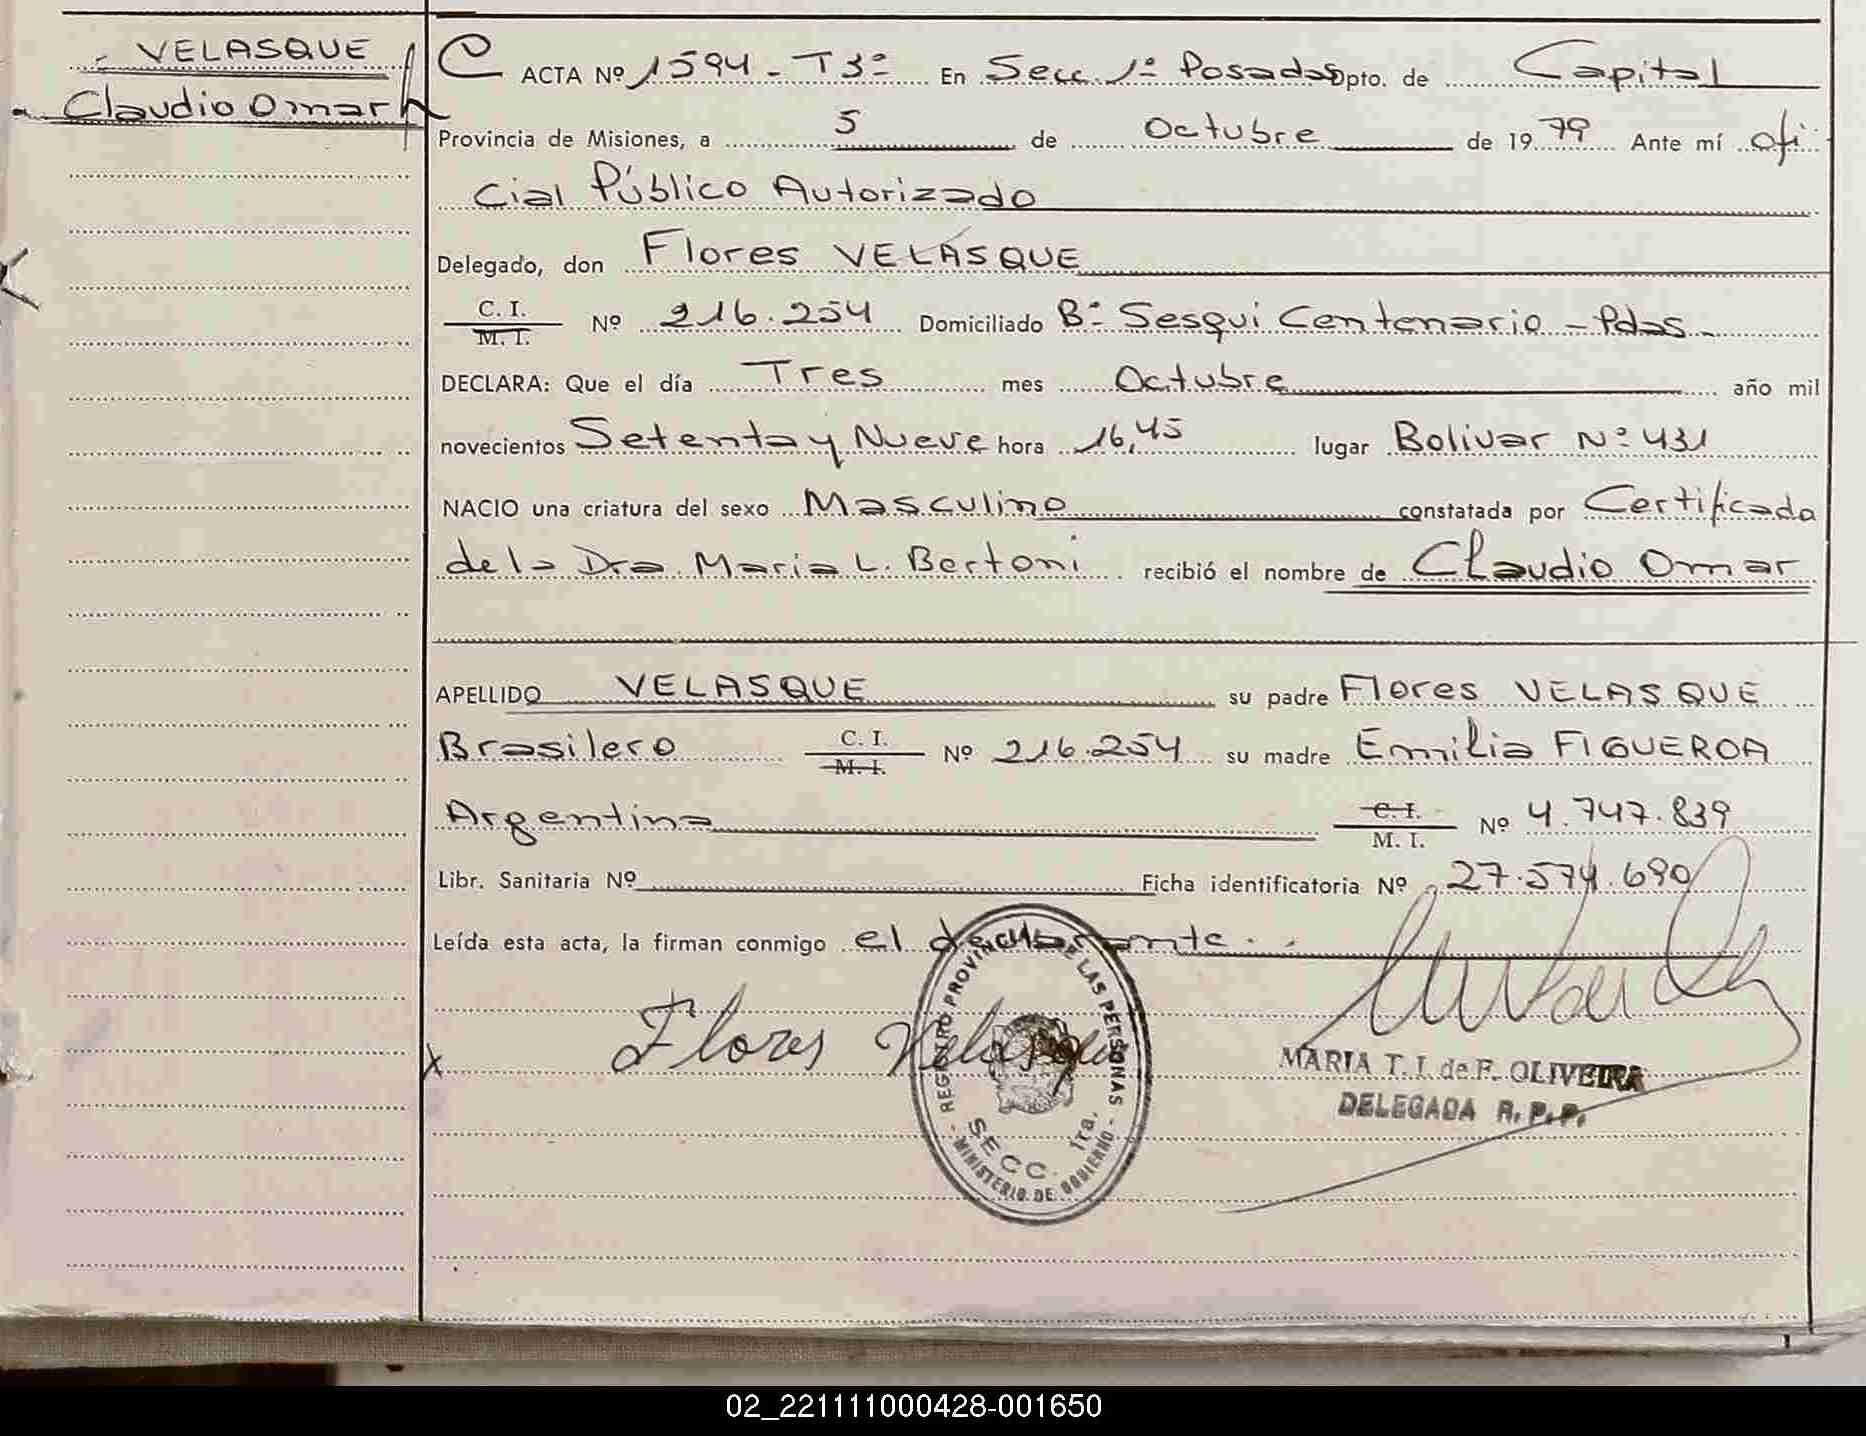 VELASQUE
Claudio Omar
ACTA Nº 1594 - T3º En Secc. 1º Posadas Dpto. de Capital
Provincia de Misiones, a 5 de Octubre de 1979 Ante mí ofi
cial Público Autorizado
Delegado, don Flores VELASQUE
C. I. / M. I. Nº 216.254 Domiciliado Bº Sesqui Centenario - Pdas -
DECLARA: Que el día Tres mes Octubre año mil
novecientos Setenta y Nueve hora 16,45 lugar Bolivar Nº 431
NACIO una criatura del sexo Masculino constatada por Certificada
de la Dra. Maria L. Bertoni recibió el nombre de Claudio Omar
APELLIDO VELASQUE su padre Flores VELASQUE
Brasilero C. I. / M. I. Nº 216.254 su madre Emilia FIGUEROA
Argentina C. I. / M. I. Nº 4.747.839
Libr. Sanitaria Nº Ficha identificatoria Nº 27.574.690
Leída esta acta, la firman conmigo el declarante.
x Flores Velasque
REGISTRO PROVINCIAL DE LAS PERSONAS
SECC. 1ra.
- MINISTERIO DE GOBIERNO -
MARIA T. I. de F. OLIVEIRA
DELEGADA R. P. P.
02_221111000428-001650